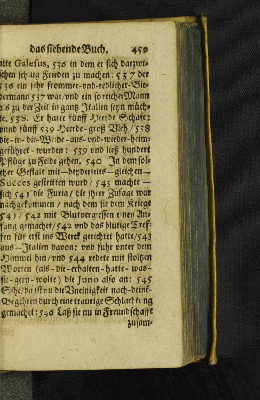 das siebende Buch. 459
alte Galesus, 536 in dem er sich darzwi-
schen schlug Frieden zu machen: 537 der
536 ein sehr frommer-und-redlicher-Bie-
dermann 537 war/und ein so reicher Mann
als zu der Zeit in gantz Italien seyn möch-
te. 538. Er hatte fünff Heerde Schafe:
und fünff 539 Heerde-groß Vieh/538
die-in-die-Weide-aus-und-wieder-heim-
geführet wurden: 539 und ließ hundert
Pflüge zu Felde gehen. 540 In dem sol-
cher Gestalt mit-beyderseits-gleichem-
Succes gestritten wurd/543 machte-
sich 541 die Furia/die ihrer Zusage war
nachgekommen/nach dem sie dem Kriege
54)/542 mit Blutvergiessen einen An-
fang gemachet/542 und das blutige Tref-
fen für erst ins Werck gerichtet hatte/543
aus-Italien davon: und fuhr unter dem
Himmel hin/und 544 redete mit stoltzen
Worten (als-die-erhalten-hatte-was-
sie-gern-wolte) die Juno also an: 545
Sihe/da ist nu die Uneinigkeit nach-deinē-
Begehren durch eine traurige Schlachtung
gemachet: 546 Laß sie nu in Freundschafft
zusam-